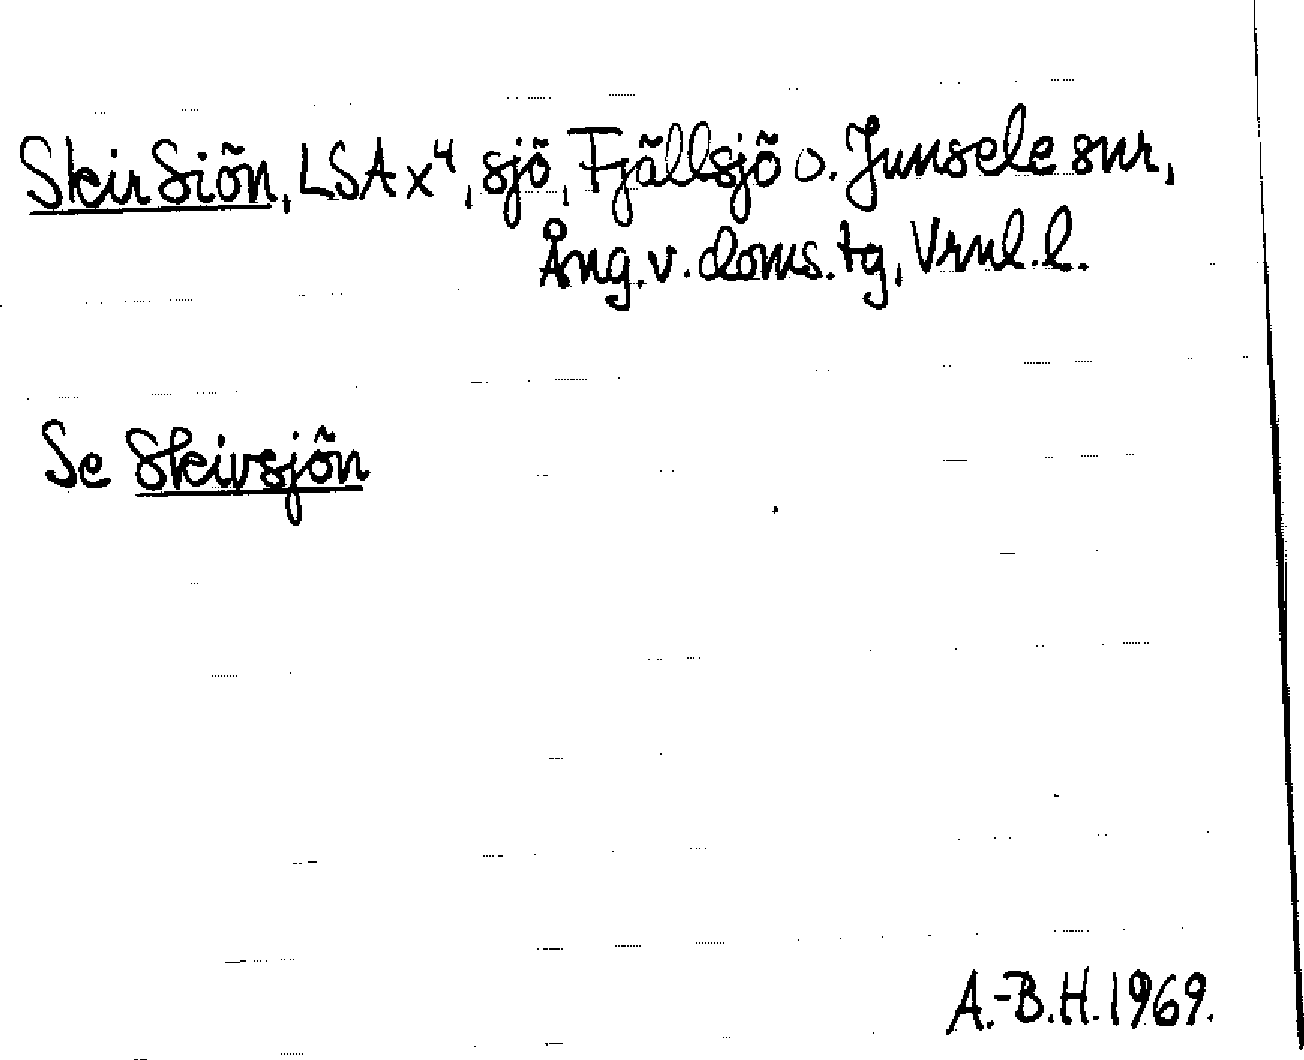 Skir Siön, LSA x⁴, sjö, Fjällsjö o. Junsele snr,
Ång. v. doms. tg, Vrnl. l.
Se Skivsjön
A.-B.H. 1969.